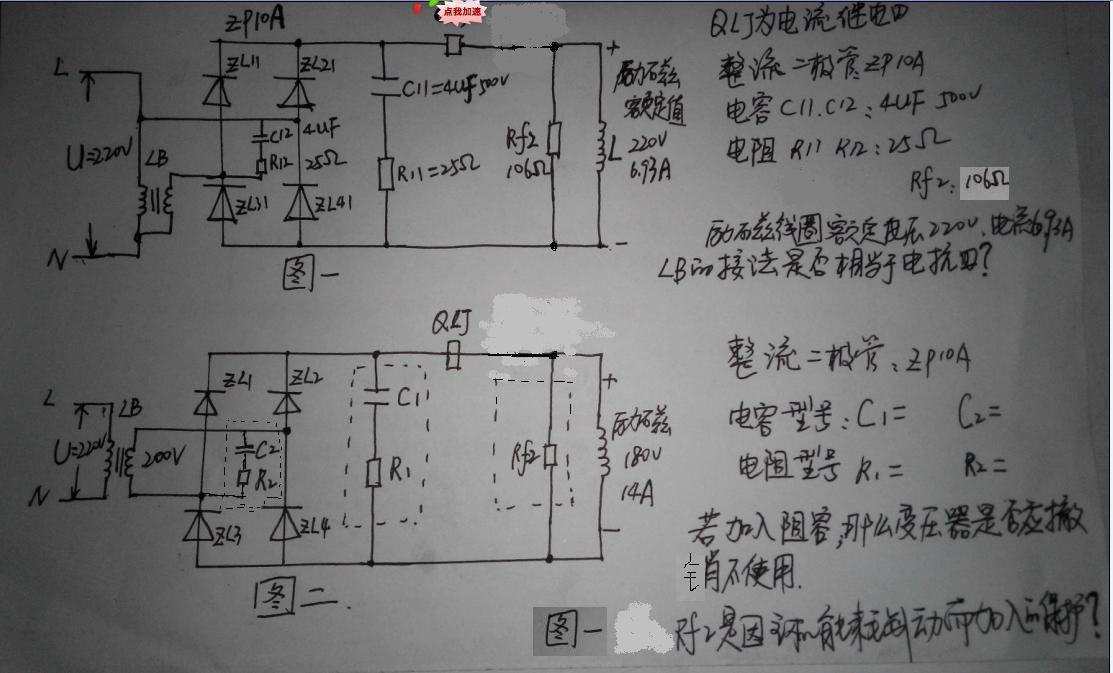 点我加速
ZP10A
QLJ为电流继电四
整流二极管ZP10A
电容C11.C12:4UF 500V
电阻 R11 R12:25Ω
Rf2:106Ω
励磁线圈额定电压220V.电流6.93A
LB的接法是否相当于电抗四?
L
U=220V
LB
N
ZL11
ZL21
C12 4UF
R12 25Ω
ZL31
ZL41
C11=4UF500V
R11=25Ω
Rf2
106Ω
+
L
励磁
额定值
220V
6.93A
-
图一
QLJ
L
LB
U=220V
200V
N
ZL1
ZL2
C2
R2
ZL3
ZL4
C1
R1
Rf2
+
励磁
180V
14A
-
图二.
整流二极管:ZP10A
电容型号:C1= C2=
电阻型号 R1= R2=
若加入阻容,那么变压器是否应撤
肖不使用.
图一
Rf2是因 而加入的保护?